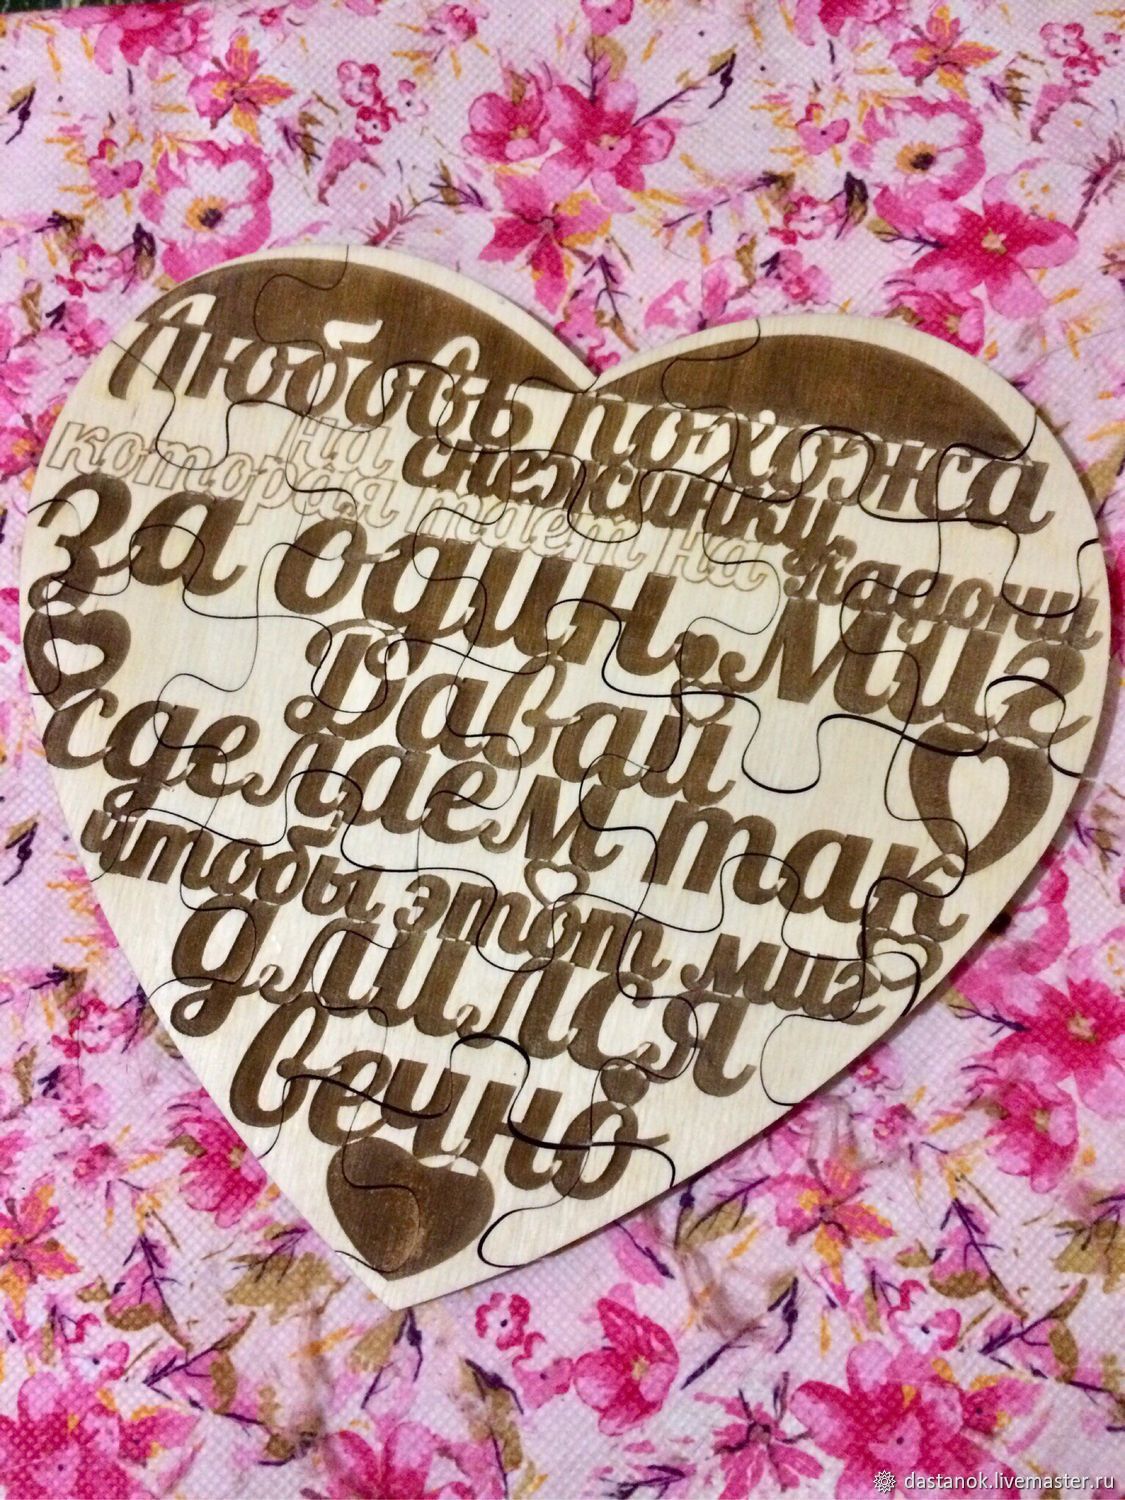 Любовь похожа
на снежинку,
которая тает на ладони
за один миг
Давай
сделаем так
чтобы этот миг
длился
вечно
dastanok.livemaster.ru